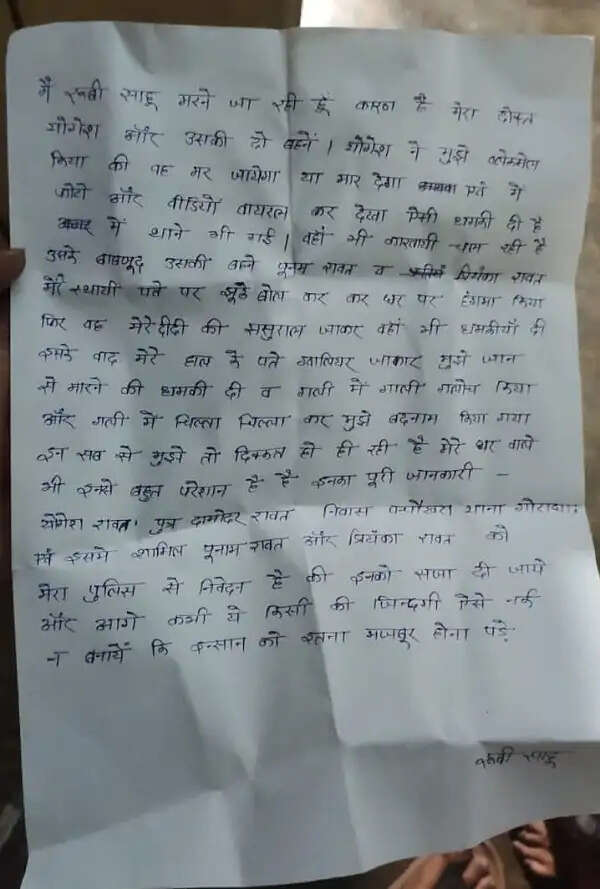 मैं रूबी साहू मरने जा रही हूँ कारण है मेरा दोस्त
योगेश और उसकी दो बहनें। योगेश ने मुझे ब्लेकमेल
किया की वह मर जायेगा या मार देगा एवं में
फोटो और वीडियों वायरल कर देगा ऐसी धमकी दी है
में थाने भी गई। वहाँ भी कारवाही चल रही है
उसके बावजूद उसकी बहने पूनम रावत व प्रियंका रावत
मेरे स्थायी पते पर झूठ बोल कर कर घर पर हंगामा किया
फिर वह मेरे दीदी की ससुराल जाकर वहाँ भी धमकीयाँ दी
इसके बाद मेरे हाल के पते ग्वालियर जाकार मुझे जान
से मारने की धमकी दी व गली में गाली गलोच किया
और गली में चिल्ला चिल्ला कर मुझे बदनाम किया गया
इन सब से मुझे तो दिक्कत हो ही रही है मेरे घर वाले
भी इनसे बहुत परेशान है है इनका पूरी जानकारी -
योगेश रावत पुत्र दामोदर रावत निवास थाना
एवं इसमे शामिल पूनाम रावत और प्रियंका रावत को
मेरा पुलिस से निवेदन है की इनको सजा दी जाये
और आगे कभी ये किसी की जिन्दगी ऐसे नर्क
न बनायें कि इन्सान को इतना मजबूर होना पड़े
रूबी साहू